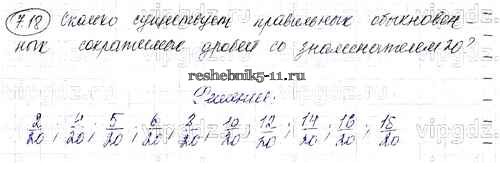 7.18 Сколько существует правильных обыкновен
ных сократимых дробей со знаменателем 20?
reshebnik5-11.ru
Решение:
2/20; 4/20; 5/20; 6/20; 8/20; 10/20; 12/20; 14/20; 16/20; 15/20
vipgdz